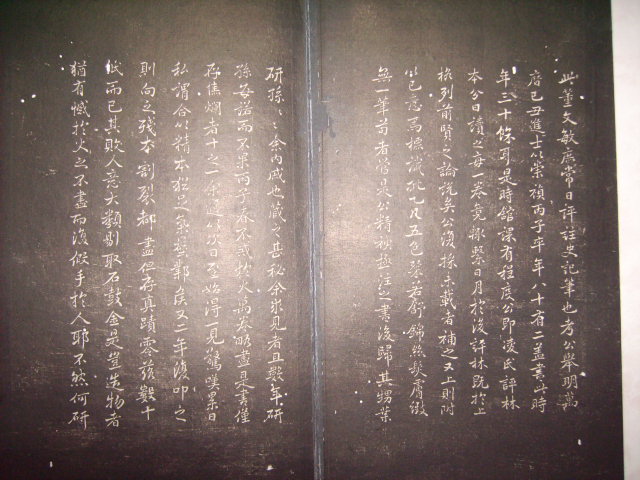 此董文敏庶常日評註史記筆也考公舉明萬
曆己丑進士以崇禎丙子卒年八十有二益其時
年三十餘耳是時館課有程度公即凌氏評林
本分日讀之每一卷竟輒繫日月於後評林既於上
格列前賢之論說矣公復採未載者補之又上則附
以己意為標識砒乙凡五色卷若舒錦絲髮膚緻
無一筆苟者當是公精神極注之書後歸其甥葉
研孫研孫余內戚也藏之甚秘余求見者且數年研
孫每諾而不果丙子春不戒於火萬卷略盡是書僅
存焦爛者十之一余過以次日至始得一見驚嘆累日
私謂合以精本猶足氣壓鄴侯又二年復叩之
則向之殘本割裂都盡但存真蹟零殘數十
紙而已其敗人意大類剔取石鼓金是豈造物者
猶有憾於火之不盡而復假手於人耶不然何研